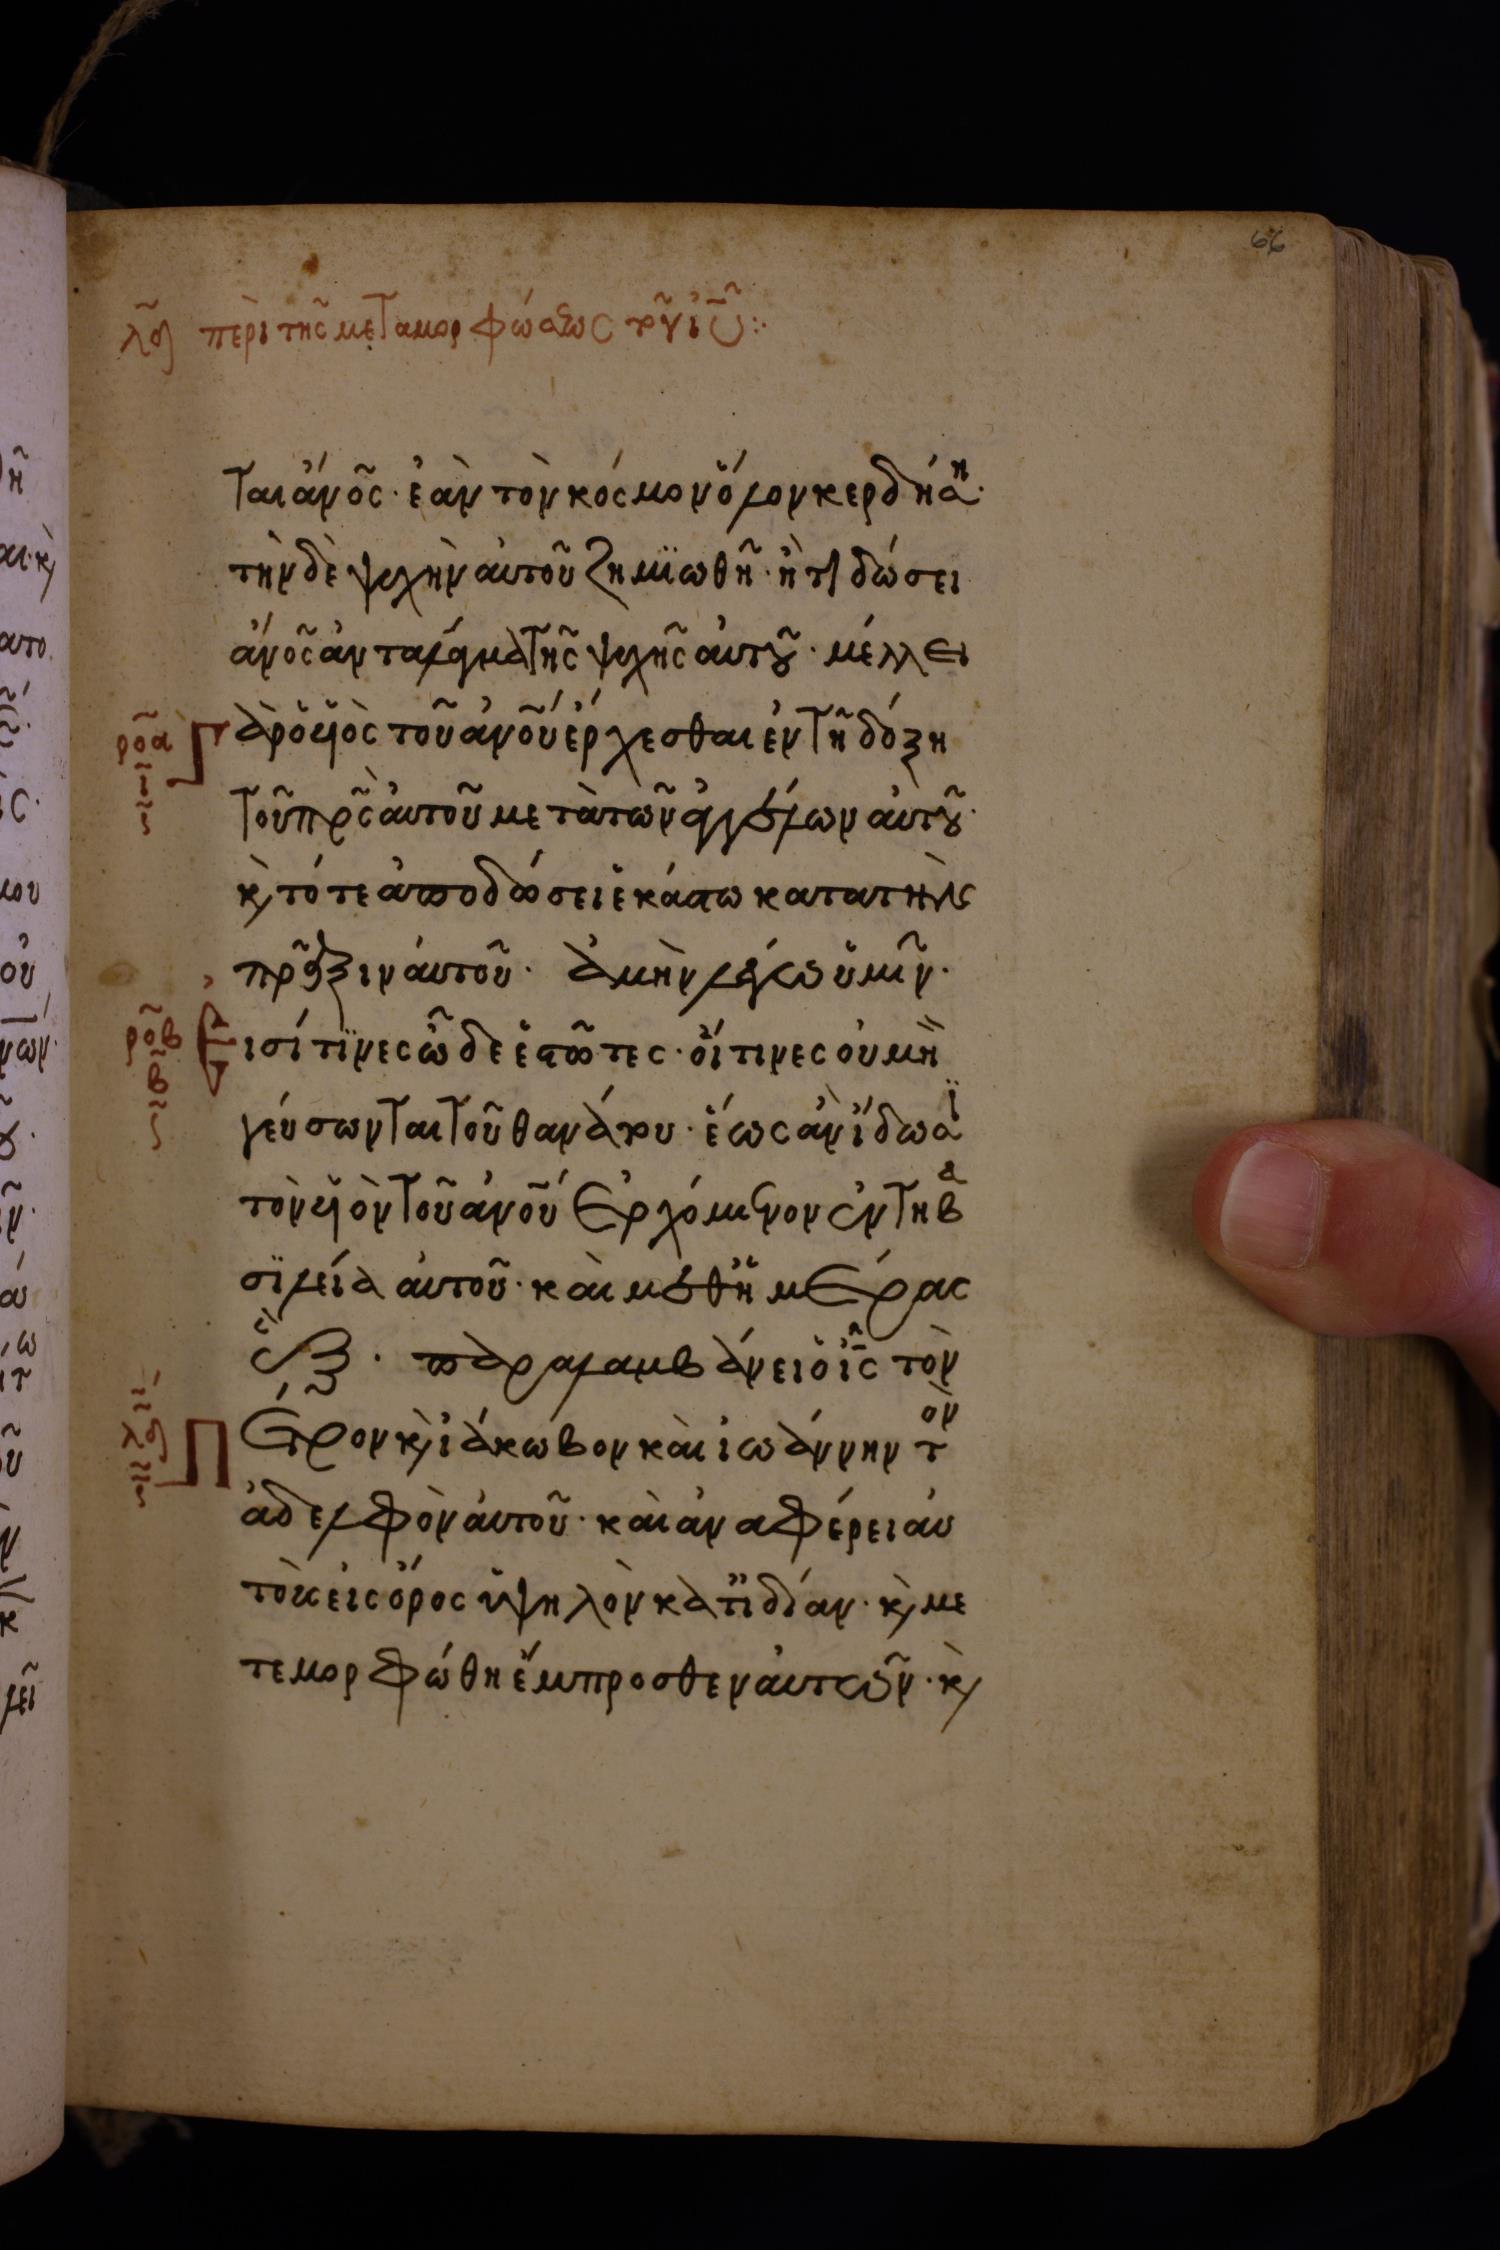 66
λδ περὶ τῆς μεταμορφώσεως τοῦ ιυ:
ται ἄνος· ἐὰν τὸν κόσμον ὅλον κερδήση·
τὴν δὲ ψυχὴν αὐτοῦ ζημϊωθῆ· ἢ τί δώσει
ἄνος ἀντάλαγμα τῆς ψυχῆς αὐτοῦ· μέλλει
ροα γὰρ ὁ υἱὸς τοῦ ἀνου ἔρχεσθαι ἐν τῆ δόξη
τοῦ πρς αὐτοῦ μετὰ τῶν ἀγγέλων αὐτοῦ·
κ τότε ἀποδώσει ἑκάστω κατα τὴν
πρᾶξιν αὐτοῦ· ἀμὴν λέγω ὑμῖν·
ροβ Εἰσί τϊνες ὧδε ἑστῶτες· οἵτινες οὐ μὴ
β
γεύσωνται τοῦ θανάτου· ἕως ἂν ἴδωσϊ
τὸν υἱὸν τοῦ ἀνου ἐρχόμενον ἐν τη βα
σϊλεία αὐτοῦ· καὶ μεθ ἡμέρας
ἓξ· παραλαμβάνει ὁ ις τὸν
λδ Πέτρον κ ἰάκωβον καὶ ἰωάννην τὸν
ἀδελφὸν αὐτοῦ· καὶ ἀναφέρει αὐ
τοὺς εἰς ὄρος ὑψηλὸν κατϊδίαν· κ με
τεμορφώθη ἔμπροσθεν αὐτῶν· κ